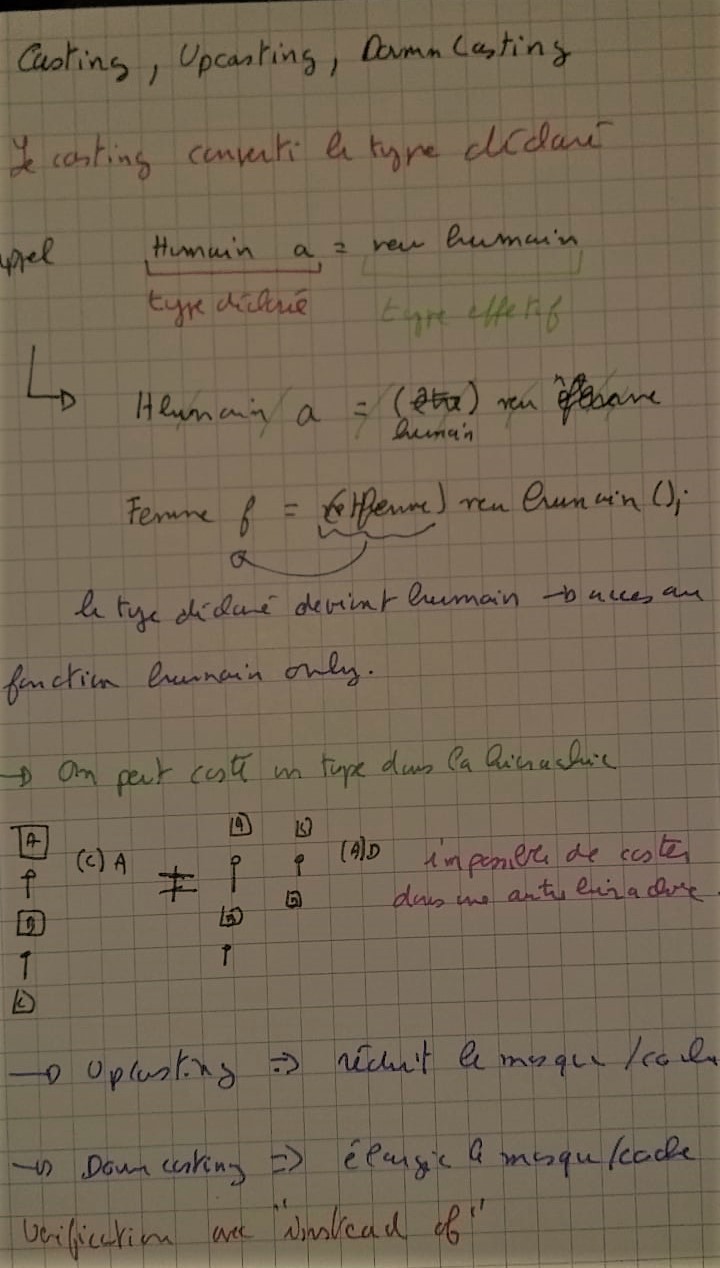 Casting, Upcasting, Down Casting
Le casting converti le type déclaré
ppel Humain a = new humain
type déclaré type effetif
Humain a = ( ) new
humain
Femme f = (femme) new humain ();
le type déclaré devient humain → acces au
fonction humain only.
→ On peut casté un type dans la hierachie
A (C) A ≠ A (A) D impossible de caster
B B dans une autre
C
→ Upcasting ⇒ réduit le masque /cache
→ Down casting ⇒ élargie le masque /cache
Verification avec "instead of"